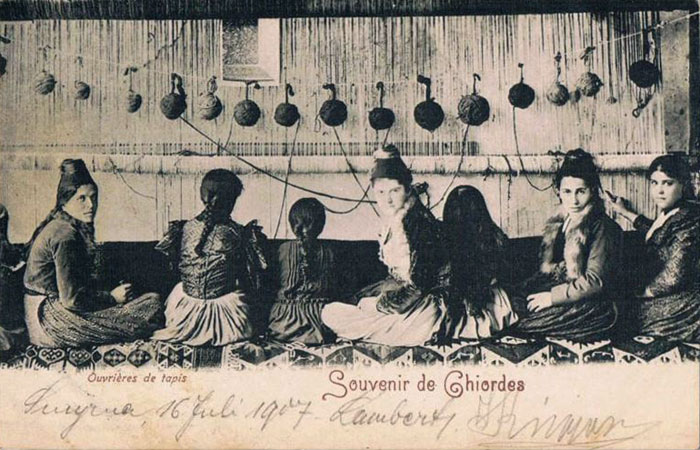 Ouvrières de tapis
Souvenir de Ghiordes
Smyrna, 16 Juli 1907. Lambert,